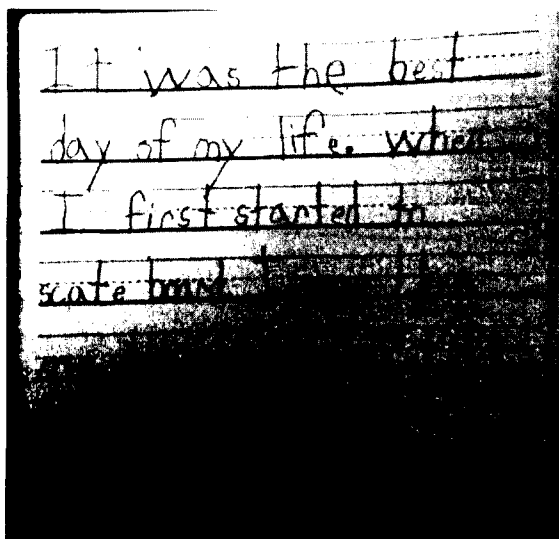 It was the best
day of my life. when
I first started to
scate board